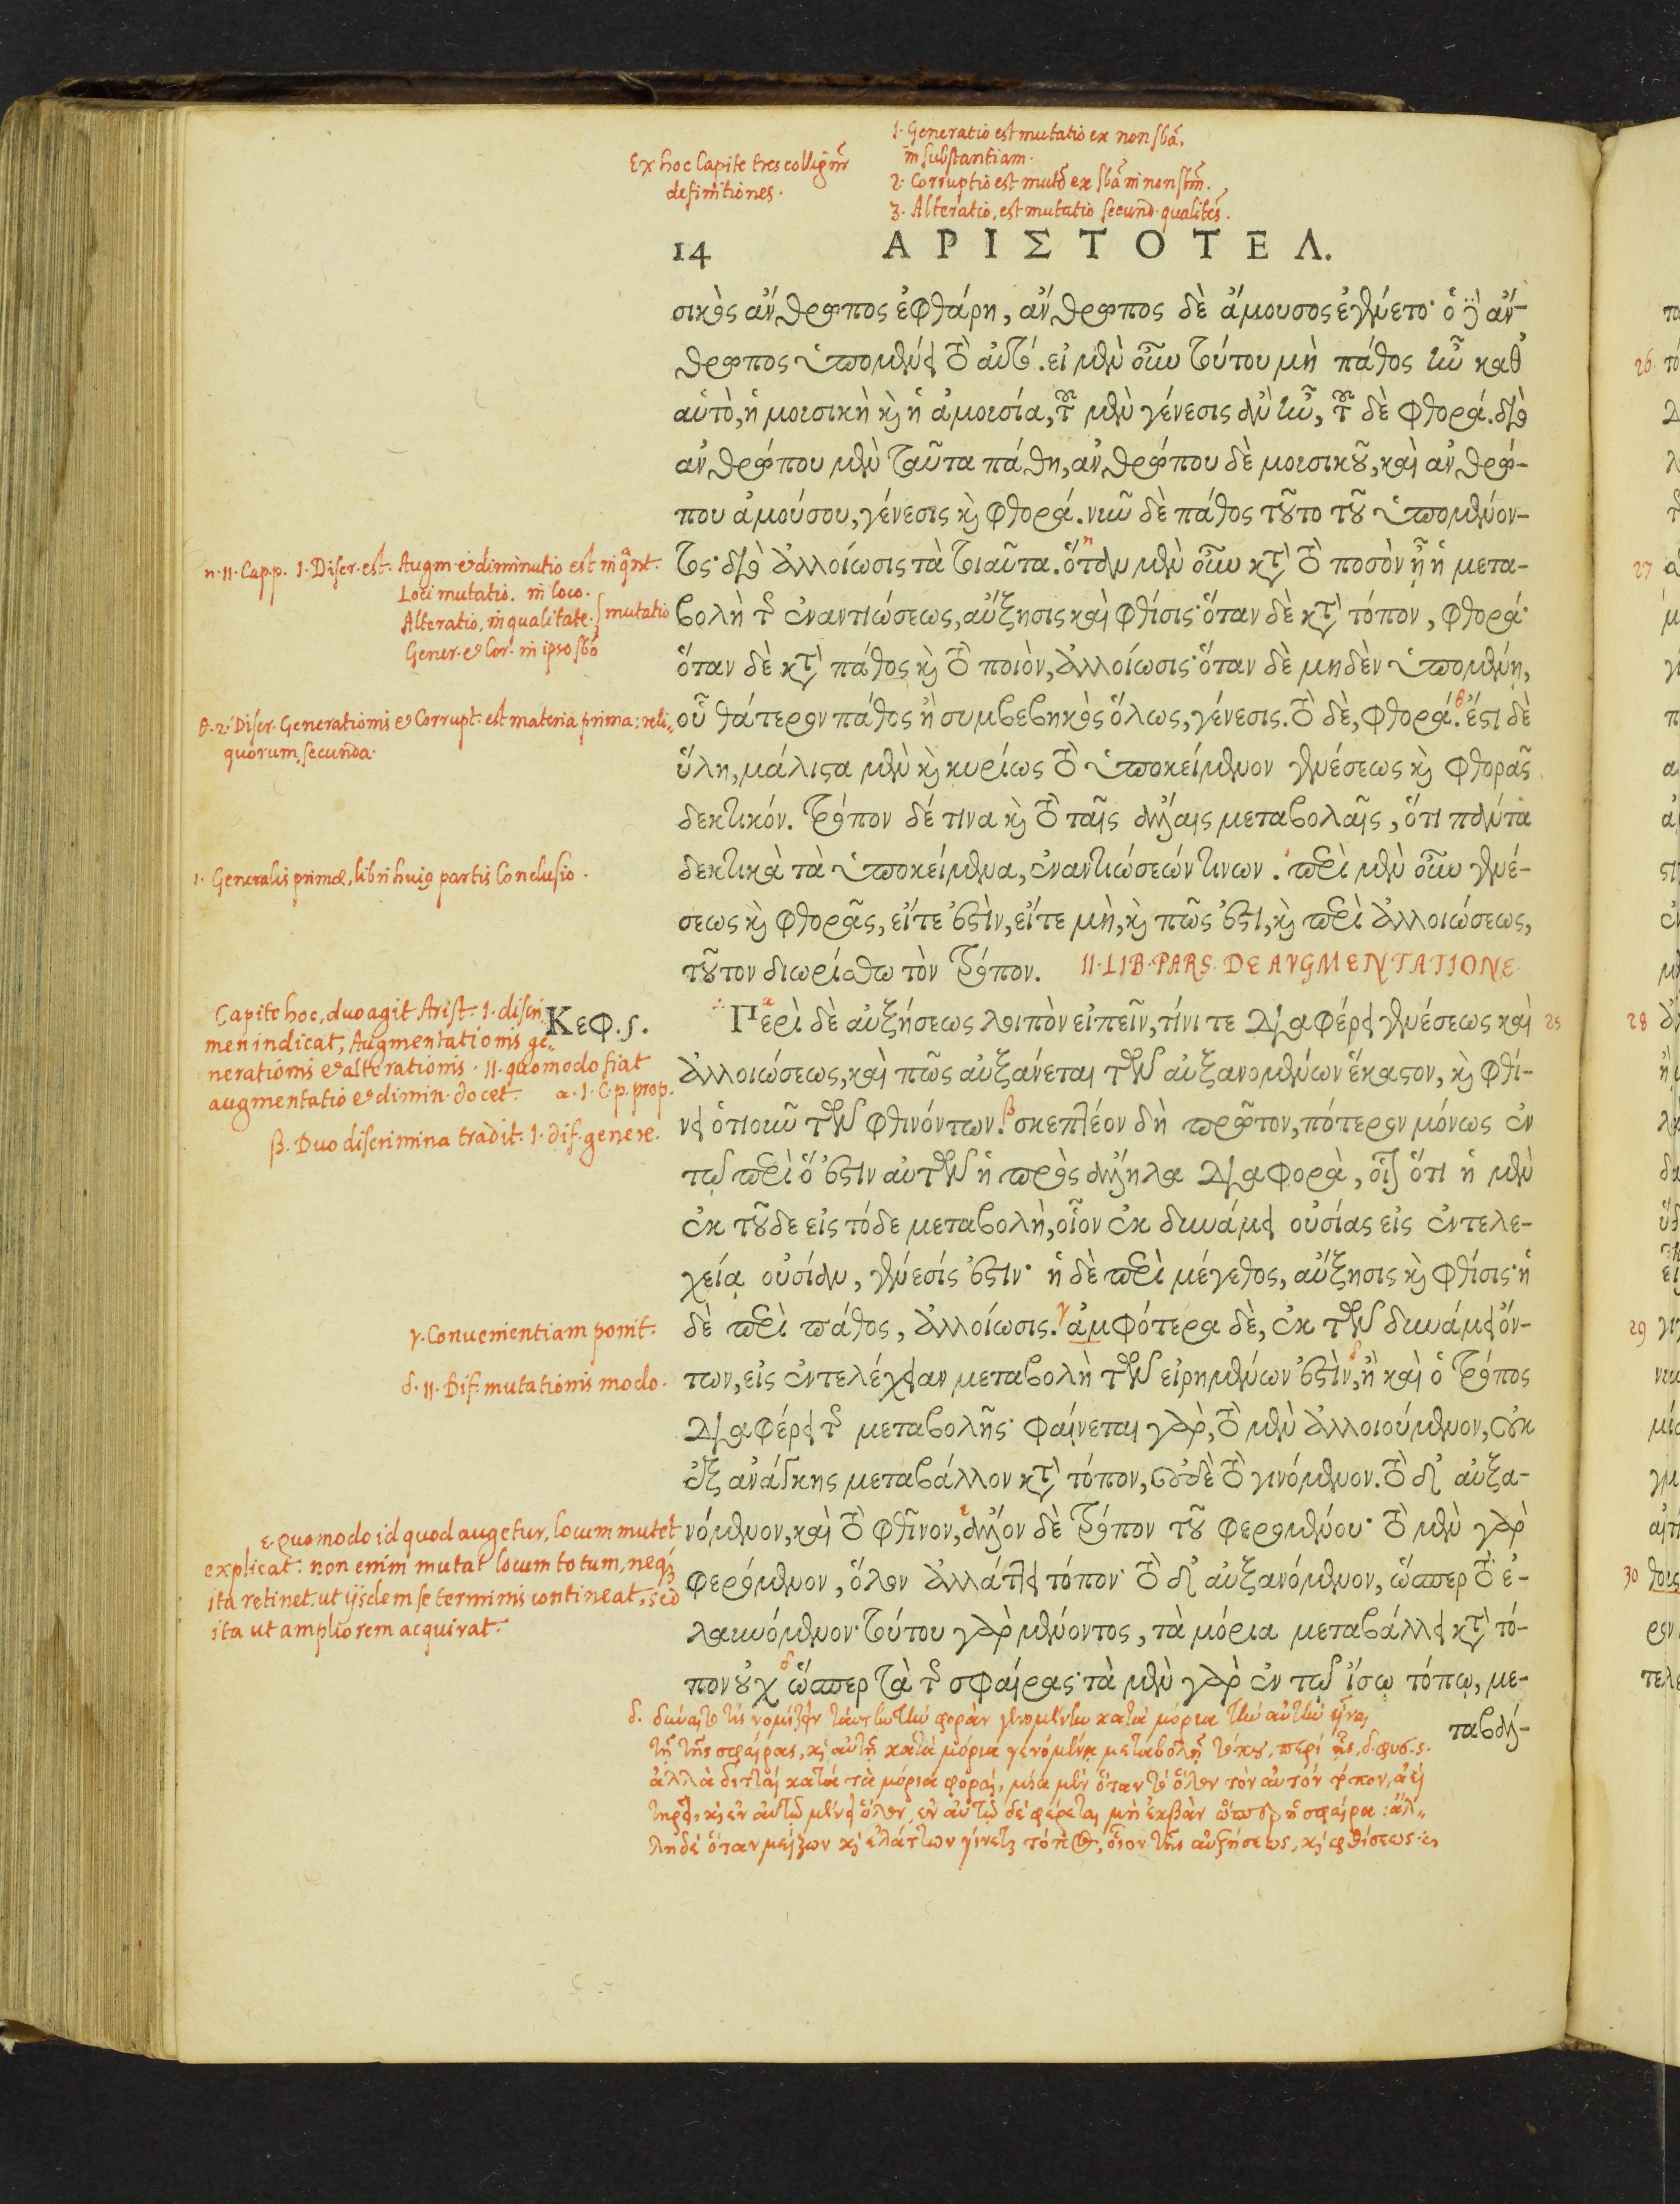 1. Generatio est mutatio ex non sbā.
in substantiam.
Ex hoc Capite tres colligūr
definitiones.
2. Corruptio est mutō ex sbā in non sbm̄.
3. Alteratio, est mutatio secund. qualitēs.
14 ΑΡΙΣΤΟΤΕΛ.
σικὸς ἄνθρωπος ἐφθάρη, ἄνθρωπος δὲ ἄμουσος ἐγένετο· ὁ δὲ ἄν-
θρωπος ὑπομένει τὸ αὐτό. εἰ μὲν οὖν τούτου μὴ πάθος ἦν καθ'
αὑτὸ, ἡ μουσικὴ καὶ ἡ ἀμουσία, τοῦ μὲν γένεσις ἂν ἦν, τοῦ δὲ φθορά. διὸ
ἀνθρώπου μὲν ταῦτα πάθη, ἀνθρώπου δὲ μουσικοῦ, καὶ ἀνθρώ-
που ἀμούσου, γένεσις καὶ φθορά. νῦν δὲ πάθος τοῦτο τοῦ ὑπομένον-
τος· διὸ ἀλλοίωσις τὰ τοιαῦτα. ὅταν μὲν οὖν κατὰ τὸ ποσὸν ᾖ ἡ μετα-
βολὴ τῆς ἐναντιώσεως, αὔξησις καὶ φθίσις· ὅταν δὲ κατὰ τόπον, φθορά·
ὅταν δὲ κατὰ πάθος καὶ τὸ ποιὸν, ἀλλοίωσις· ὅταν δὲ μηδὲν ὑπομένῃ,
οὗ θάτερον πάθος ἢ συμβεβηκὸς ὅλως, γένεσις. τὸ δὲ, φθορά. ἔστι δὲ
ὕλη, μάλιστα μὲν καὶ κυρίως τὸ ὑποκείμενον γενέσεως καὶ φθορᾶς
δεκτικόν. τρόπον δέ τινα καὶ τὸ ταῖς ἄλλαις μεταβολαῖς, ὅτι πάντα
δεκτικὰ τὰ ὑποκείμενα, ἐναντιώσεών τινων. περὶ μὲν οὖν γενέ-
σεως καὶ φθορᾶς, εἴτε ἐστὶν, εἴτε μὴ, καὶ πῶς ἐστι, καὶ περὶ ἀλλοιώσεως,
τοῦτον διωρίσθω τὸν τρόπον. II. LIB. PARS. DE AVGMENTATIONE
Κεφ. ς. Περὶ δὲ αὐξήσεως λοιπὸν εἰπεῖν, τίνι τε διαφέρει γενέσεως καὶ 25
ἀλλοιώσεως, καὶ πῶς αὐξάνεται τῶν αὐξανομένων ἕκαστον, καὶ φθί-
νει ὁτιοῦν τῶν φθινόντων. σκεπτέον δὴ πρῶτον, πότερον μόνως ἐν
τῷ περὶ ὅ ἐστιν αὐτῶν ἡ πρὸς ἄλληλα διαφορὰ, οἷον ὅτι ἡ μὲν
ἐκ τοῦδε εἰς τόδε μεταβολὴ, οἷον ἐκ δυνάμει οὐσίας εἰς ἐντελε-
χείᾳ οὐσίαν, γένεσίς ἐστιν· ἡ δὲ περὶ μέγεθος, αὔξησις καὶ φθίσις· ἡ
δὲ περὶ πάθος, ἀλλοίωσις. ἀμφότερα δὲ, ἐκ τῶν δυνάμει ὄν-
των, εἰς ἐντελέχειαν μεταβολὴ τῶν εἰρημένων ἐστὶν, ἢ καὶ ὁ τρόπος
διαφέρει τῆς μεταβολῆς· φαίνεται γὰρ, τὸ μὲν ἀλλοιούμενον, οὐκ
ἐξ ἀνάγκης μεταβάλλον κατὰ τόπον, οὐδὲ τὸ γινόμενον. τὸ δ' αὐξα-
νόμενον, καὶ τὸ φθῖνον, ἄλλον δὲ τρόπον τοῦ φερομένου· τὸ μὲν γὰρ
φερόμενον, ὅλον ἀλλάττει τόπον· τὸ δ' αὐξανόμενον, ὥσπερ τὸ ἐ-
λαυνόμενον· τούτου γὰρ μένοντος, τὰ μόρια μεταβάλλει κατὰ τό-
πον οὐχ ὥσπερ τὰ τῆς σφαίρας· τὰ μὲν γὰρ ἐν τῷ ἴσῳ τόπῳ, με-
ταβάλ-
η. II. Cap. p. 1. Discr. est. Augm. et diminutio est in qant.
Loci mutatio. in loco.
Alteratio, in qualitate. mutatio
Gener. et Cor. in ipso sbō
θ. 2. Discr. Generationis et Corrupt. est materia prima; reli-
quorum, secunda.
ι. Generalis primæ, libri huius partis Conclusio.
Capite hoc, duo agit Arist. 1. discri-
men indicat, Augmentationis ge-
nerationis et alterationis. II. quomodo fiat
augmentatio et dimin. docet. α. 1. C. p. prop.
β. Duo discrimina tradit. 1. dif. genere.
γ. Convenientiam ponit.
δ. II. Dif. mutationis modo.
ε. quomodo id quod augetur, locum mutet
explicat: non enim mutat locum totum, neq3
ita retinet, ut iisdem se terminis contineat, sed
ita ut ampliorem acquirat.
τῇ τῆς σφαίρας, καὶ αὐτῇ κατὰ μόρια γενομένῃ μεταβολῇ τόπου, περὶ ἧς, δ. φυσ. ς.
ἀλλὰ διτταὶ κατὰ τὰ μόρια φοραὶ, μία μὲν ὅταν τὸ ὅλον τὸν αὐτὸν τόπον, ἀεὶ
τηρεῖ, καὶ ἐν αὐτῷ μένει ὅλον, ἐν αὐτῷ δὲ φέρεται μὴ ἐκβὰν ὥσπερ ἡ σφαίρα: ἀλ-
λη δὲ ὅταν μείζων καὶ ἐλάττων γίνεται τόπος, οἷον τῆς αὐξήσεως, καὶ φθίσεως.
26
27
28
29
30